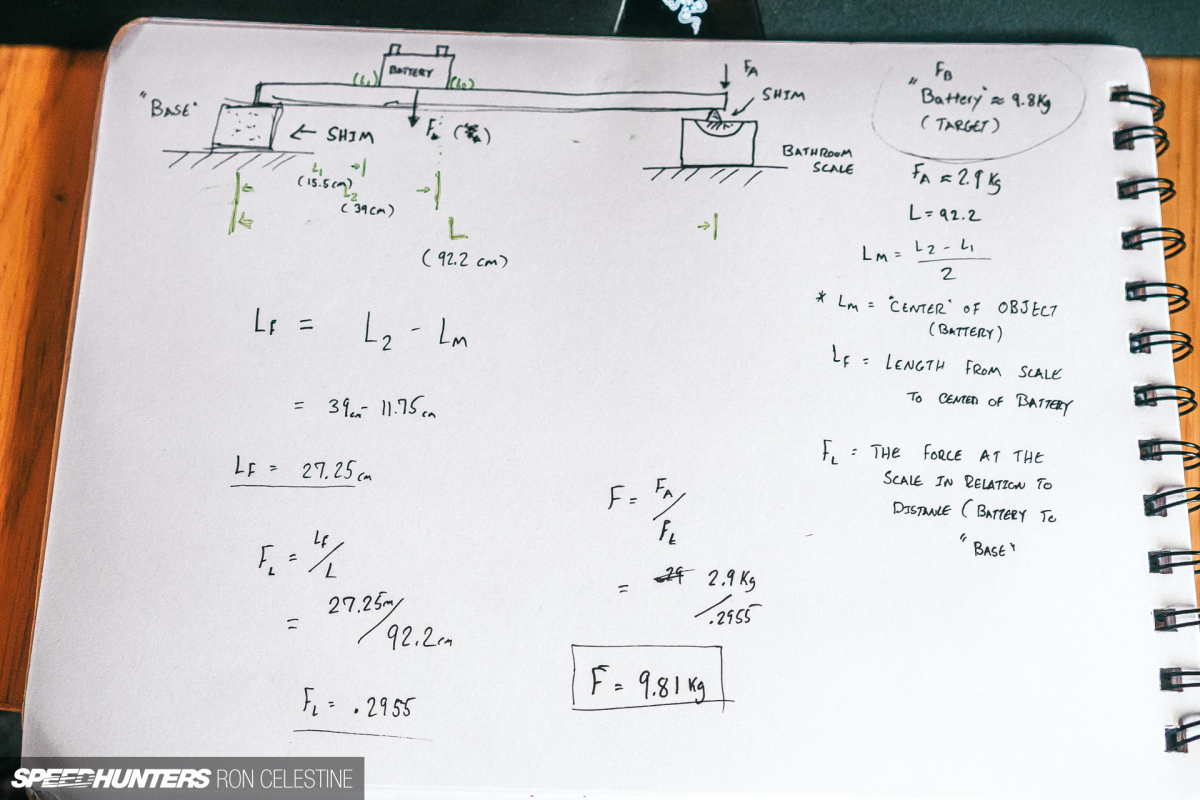 "BASE"
(L₁)
BATTERY
(L₂)
F_A
SHIM
← SHIM
BATHROOM
SCALE
L₁
(15.5cm)
L₂
(39cm)
L
(92.2 cm)
F_B
"Battery" ≈ 9.8Kg
(TARGET)
F_A ≈ 2.9 Kg
L = 92.2
L_M = L₂ - L₁ / 2
* L_M = "CENTER" OF OBJECT
(BATTERY)
L_F = LENGTH FROM SCALE
TO CENTER OF BATTERY
F_L = THE FORCE AT THE
SCALE IN RELATION TO
DISTANCE (BATTERY TO
"BASE"
L_F = L₂ - L_M
= 39cm - 11.75cm
L_F = 27.25cm
F_L = L_F / L
= 27.25m / 92.2cm
F_L = .2955
F = F_A / F_L
= 2.9Kg / .2955
F = 9.81 Kg
SPEEDHUNTERS RON CELESTINE